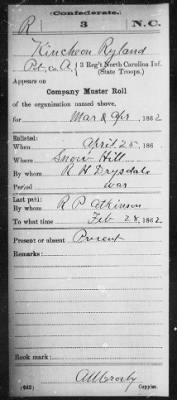 (Confederate.)
R 3 N.C.
Kincheon Ryland
Pvt, Co. A, 3 Reg't North Carolina Inf.
(State Troops.)
Appears on
Company Muster Roll
of the organization named above,
for Mar & Apr, 1862
Enlisted:
When April 25, 186
Where Snow Hill
By whom R H Drysdale
Period war
Last paid:
By whom R P Atkinson
To what time Feb 28, 1862
Present or absent Present
Remarks:
Book mark:
(642) Copyist.